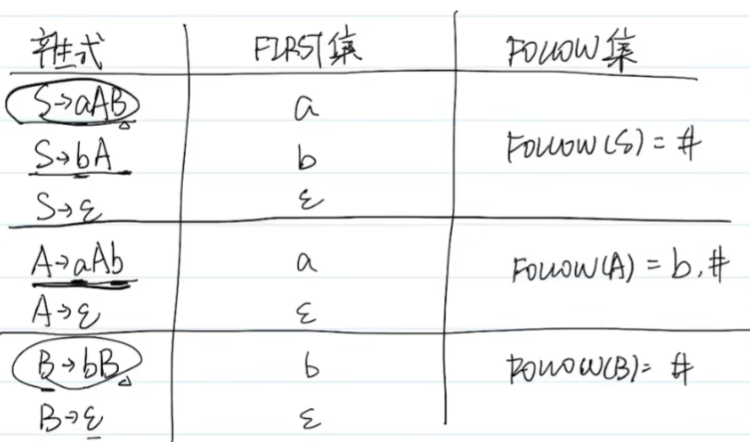 产生式 FIRST集 FOLLOW集
S→aAB a
FOLLOW(S) = #
S→bA b
S→ε ε
A→aAb a FOLLOW(A) = b,#
A→ε ε
B→bB b FOLLOW(B) = #
B→ε ε